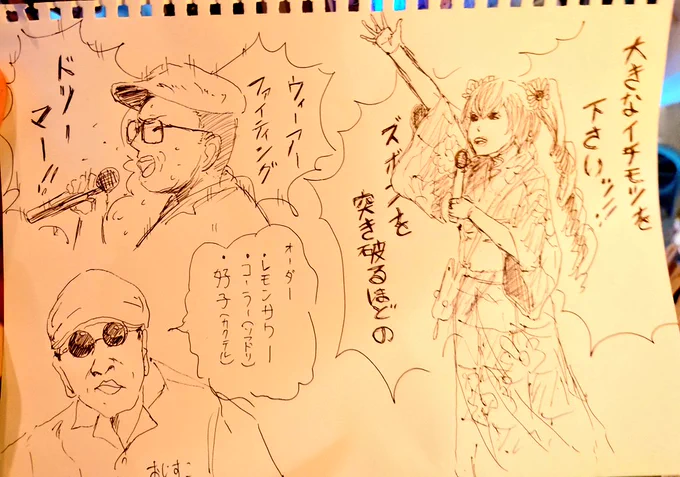 大きなイチモツを
下さいッ!!
ズボンを
突き破るほどの
ウィーアー
ファイティング
ドリー
マー!!
オーダー
・レモンサワー
・コーラ(ソフドリ)
・好子(カクテル)
おじすこ